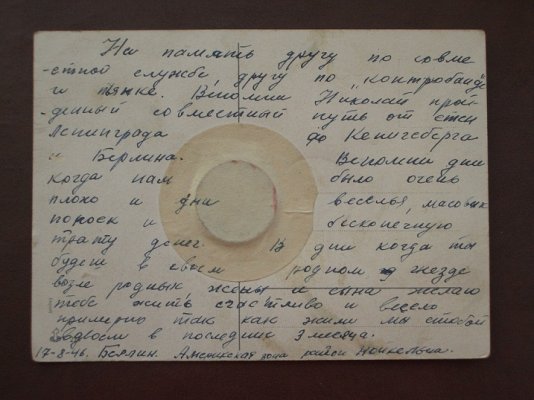 На память другу по совме
-стной службе, другу по "контробанде"
и пьянке. Вспомни Николай прой
-денный совместный путь от стен
Ленинграда до Кенигсберга
и Берлина. Вспомни дни
когда нам было очень
плохо и дни веселья, масовых
попоек и бесконечную
трату денег. В дни когда ты
будеш в своем родном гнезде
возле родных, жены и сына желаю
тебе жить счастливо и весело
примерно так как жили мы с тобой
вдвоем в последние 3 месяца.
17-8-46. Берлин. Американская зона район Нойкельна.